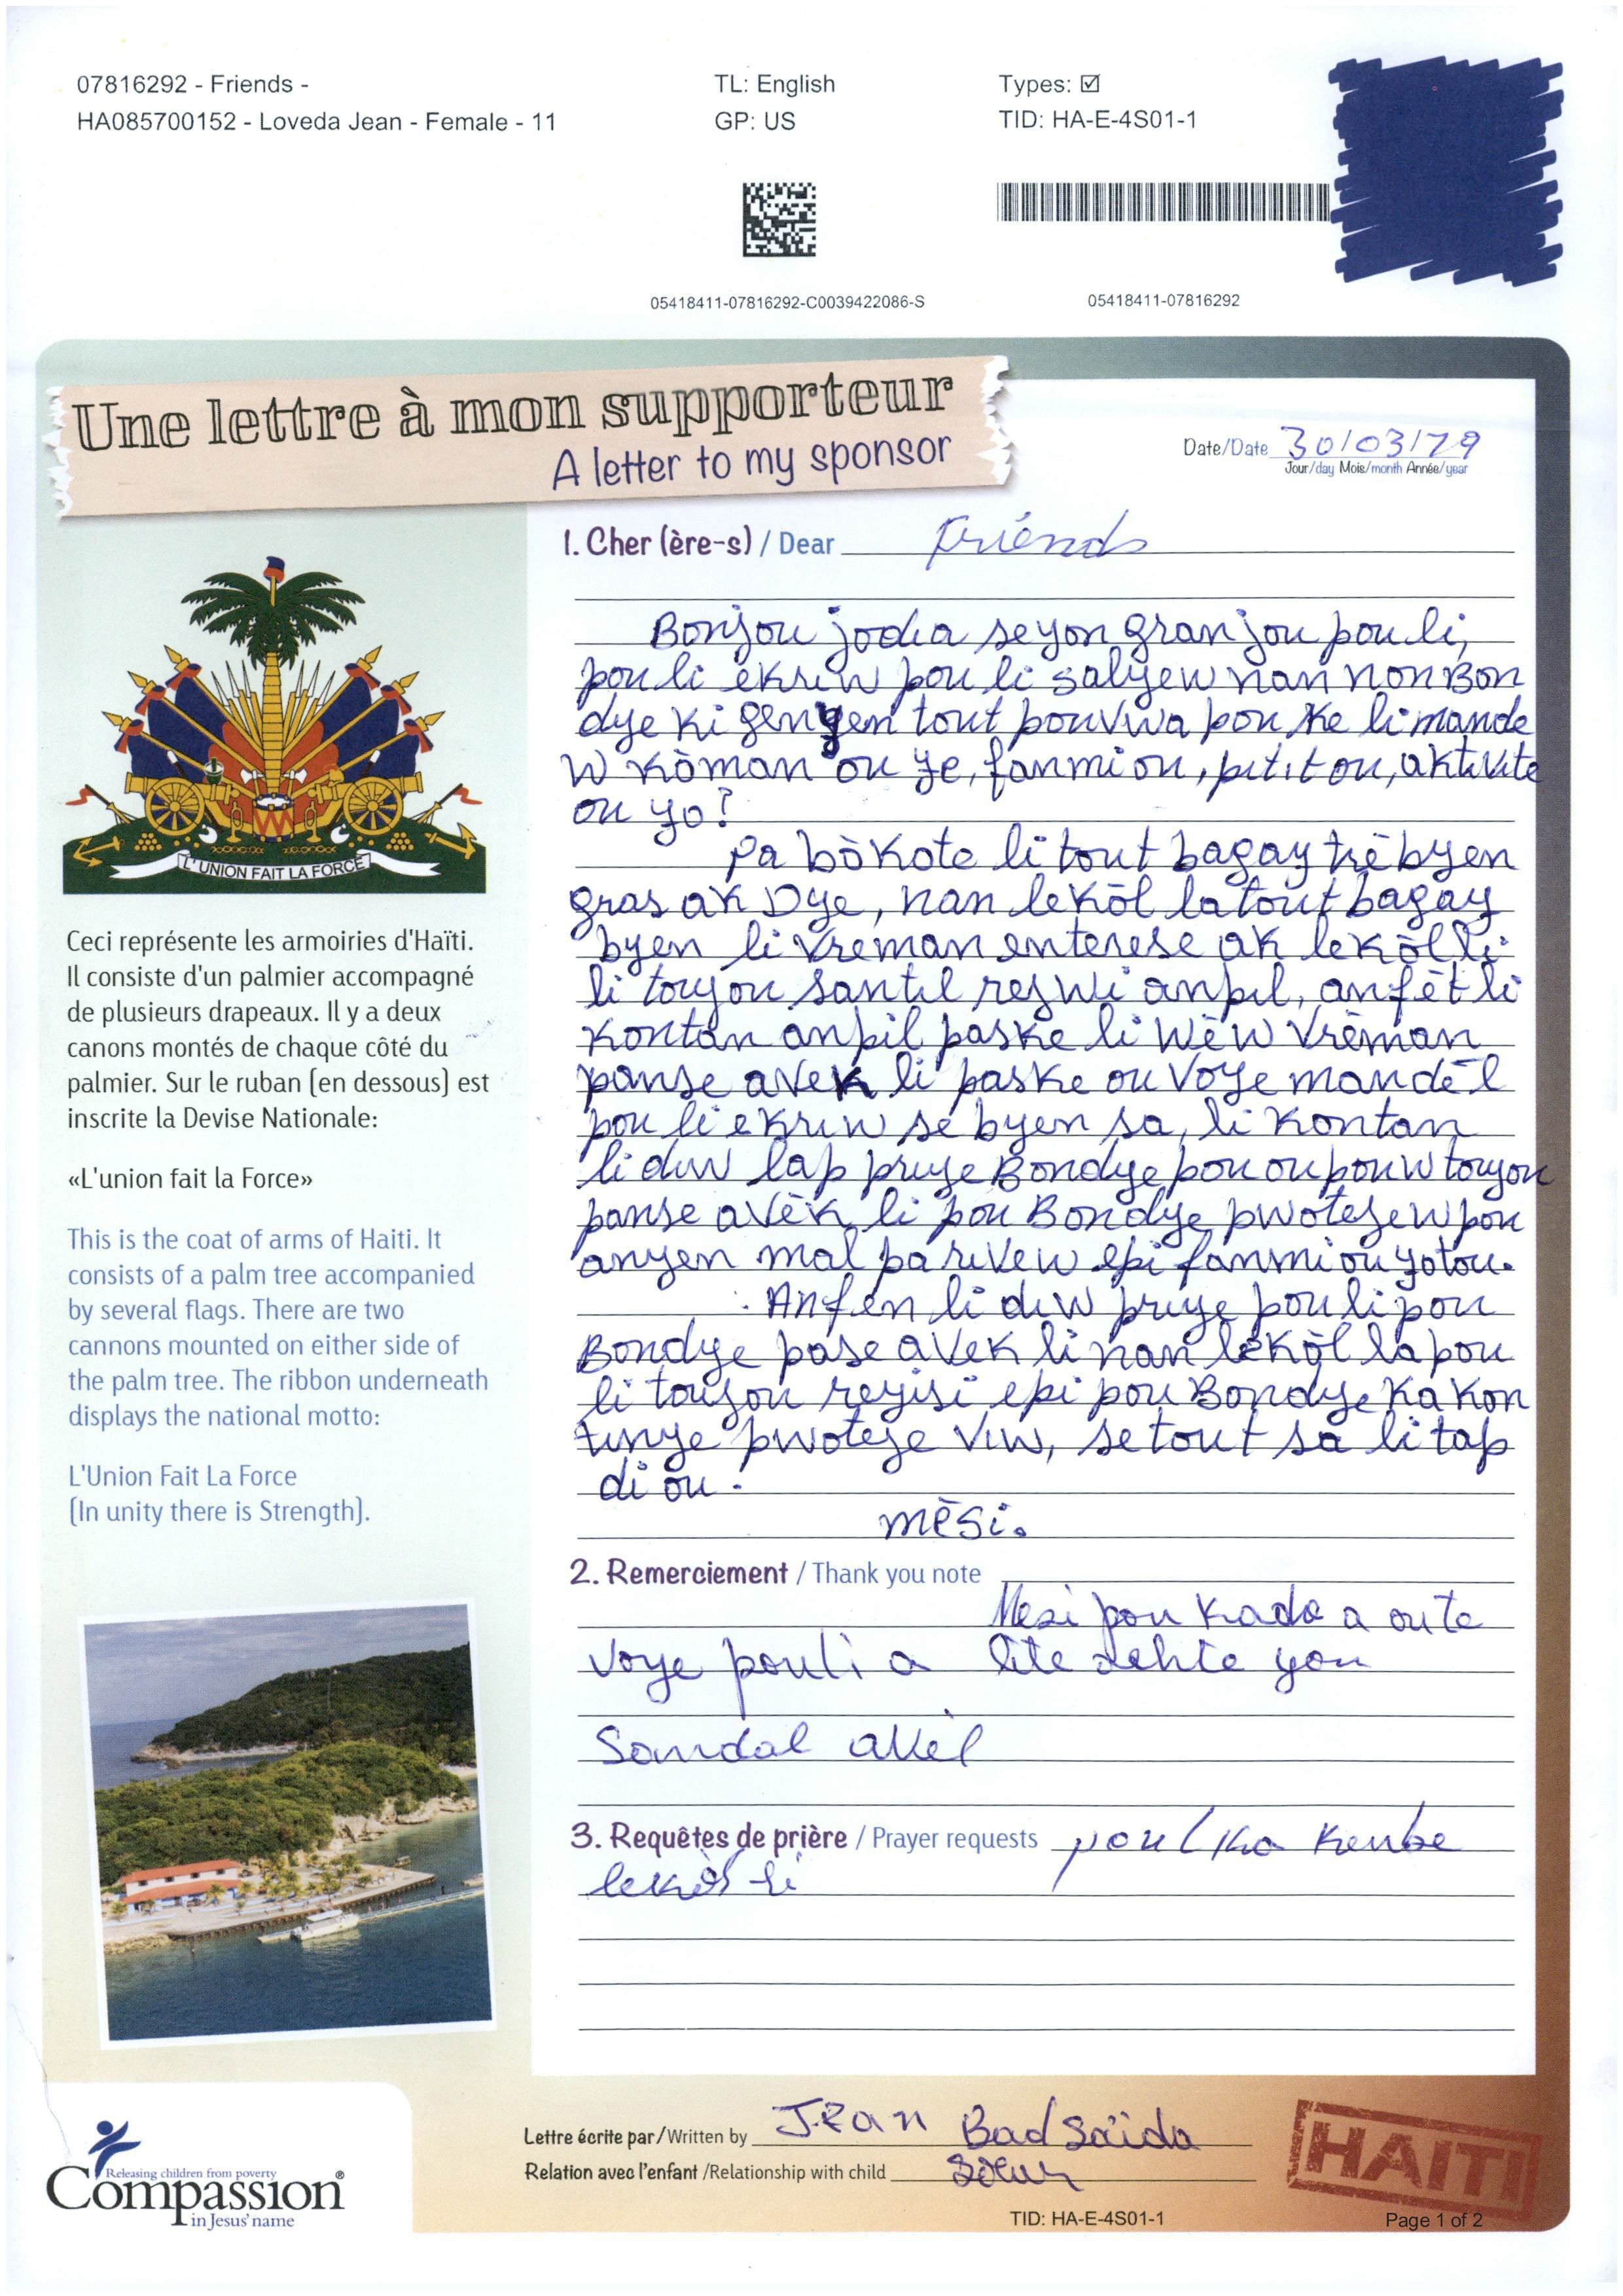 07816292 - Friends -
HA085700152 - Loveda Jean - Female - 11
TL: English
GP: US
Types: ☑
TID: HA-E-4S01-1
05418411-07816292-C0039422086-S
05418411-07816292
Une lettre à mon supporteur
A letter to my sponsor
Date/Date 30/03/19
Jour/day Mois/month Année/year
L'UNION FAIT LA FORCE
Ceci représente les armoiries d'Haïti.
Il consiste d'un palmier accompagné
de plusieurs drapeaux. Il y a deux
canons montés de chaque côté du
palmier. Sur le ruban (en dessous) est
inscrite la Devise Nationale:
«L'union fait la Force»
This is the coat of arms of Haiti. It
consists of a palm tree accompanied
by several flags. There are two
cannons mounted on either side of
the palm tree. The ribbon underneath
displays the national motto:
L'Union Fait La Force
(In unity there is Strength).
1. Cher (ère-s) / Dear Friends
Bonjou jodia se yon gran jou pou li,
pou li ekriw pou li salyew nan non Bon
dye ki genyen tout pouvwa pou ke li mande
w kòman ou ye, fanmi ou, pitit ou, aktivite
ou yo?
Pa bò kote li tout bagay trè byen
gras ak Dye, nan lekòl la tout bagay
byen li vreman enterese ak lekòl li
li toujou santil rejwi anpil, anfèt li
kontan anpil paske li wèw vrèman
panse avek li paske ou voye mandèl
pou li ekriw se byen sa, li kontan
li diw lap priye Bondye pou ou pouw toujou
panse avèk li pou Bondye pwotejew pou
anyen mal pa rivew epi fanmi ou yo tou.
Anfen li diw priye pou li pou
Bondye pase avek li nan lekòl la pou
li toujou reyisi epi pou Bondye ka kon
tinye pwoteje viw, se tout sa li tap
di ou.
mèsi.
2. Remerciement / Thank you note
Mesi pou kado a ou te
voye pou li a li te achte yon
Sandal avèl
3. Requêtes de prière / Prayer requests pou l ka kenbe
lekòl li
Lettre écrite par/Written by Jean Bad Saïda
Relation avec l'enfant /Relationship with child Soeur
HAITI
Releasing children from poverty
Compassion®
in Jesus' name
TID: HA-E-4S01-1
Page 1 of 2